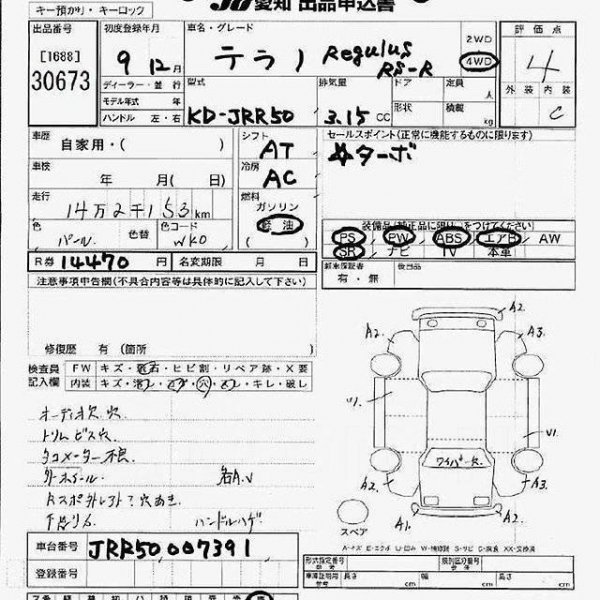 愛知 出品申込書
キー預かり・キーロック
出品番号
[1688]
30673
初度登録年月
9 12月
ディーラー・並行
モデル年式 年
ハンドル 左・右
車名・グレード
テラノ Regulus RS-R
2WD
4WD
評価点
4
外装 内装
C
型式
KD-JRR50
排気量
3.15 CC
ドア
形状
定員
人
積載
kg
車歴
自家用・( )
車検
年 月( 日)
走行
14万2千153km
色
パール
色替
色コード
WK0
シフト
AT
冷房
AC
燃料
ガソリン
軽油
( )
セールスポイント(正常に機能するものに限ります)
☆ターボ
装備品(純正品に限り○をつけてください)
PS PW ABS エアB AW
SR ナビ TV 本革
新車保証書
有・無
後日品
R券 14470 円
名変期限 月 日
注意事項申告欄(不具合内容等は具体的に記入して下さい)
修復歴 有(箇所
検査員
記入欄
FW キズ・飛石・ヒビ割・リペア跡・X要
内装 キズ・汚れ・コゲ・穴・スレ・キレ・破し
オーディオ欠 穴
トリム ビス穴
タコメーター不良
外ホイール
各A.V
穴あき
ハンドルハゲ
A2
A2
A3
A2
A3
A1
A2
ワイパー欠
スペア
車台番号 JRR50,007391
登録番号
型式指定番号
類別区分番号
車庫証明用
参考
長さ cm
幅 cm
高さ cm